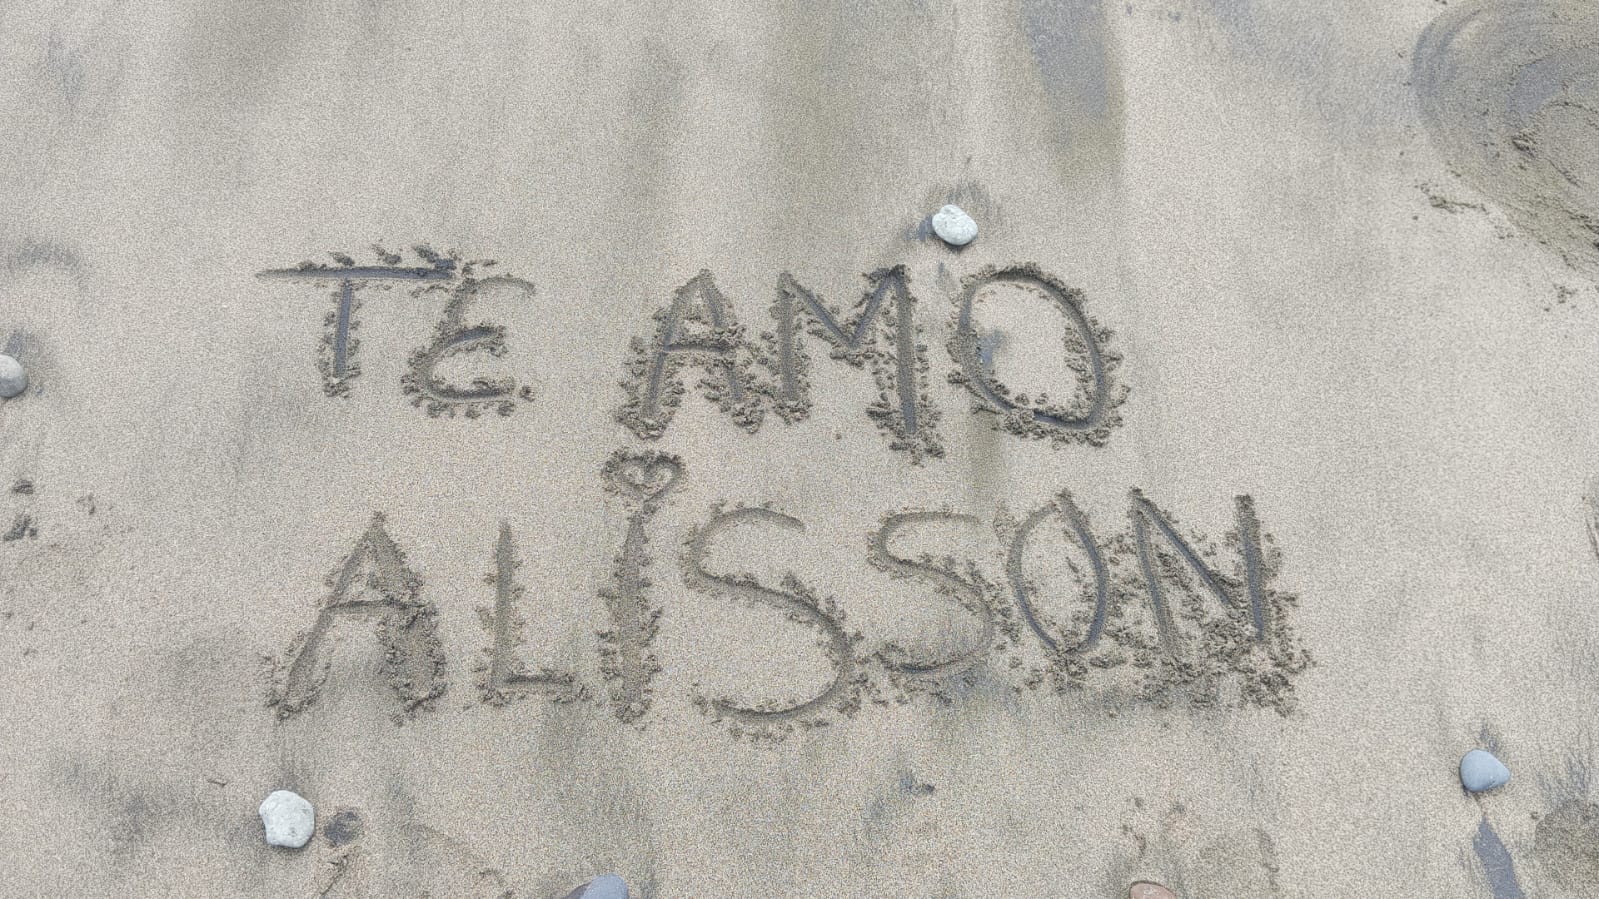 TE AMO
ALiSSON